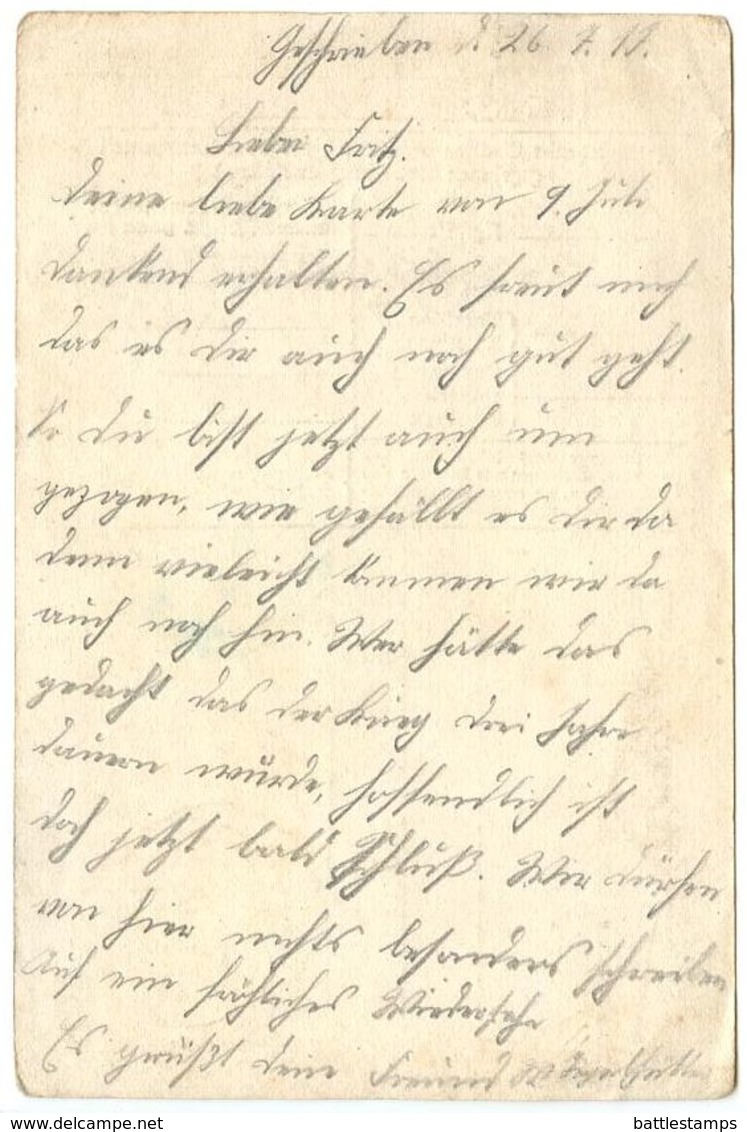 Geschrieben d. 26. 7. 17.
Lieber Fritz.
Deine liebe Karte vom 9. Juli
dankend erhalten. Es freut mich
das es dir auch noch gut geht.
So du bist jetzt auch um
gezogen, wie gefällt es dir da
denn vieleicht kommen wir da
auch noch hin. Wer hätte das
gedacht das der Krieg drei Jahre
dauern würde, hoffendlich ist
doch jetzt bald Schluß. Wir dürfen
von hier nichts besonders schreiben
Auf ein fröhliches Wiedersehn
Es grüßt dein Freund W.
battlestamps